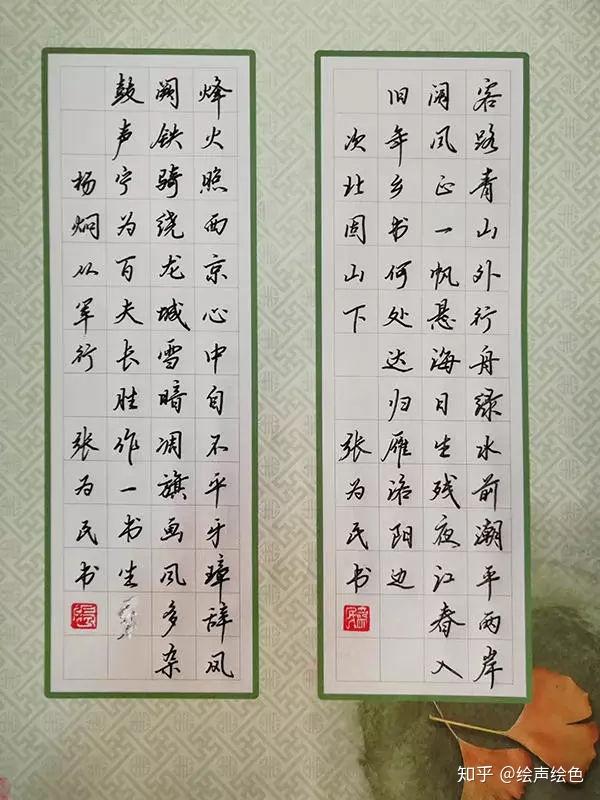 客路青山外行舟绿水前潮平两岸
阔风正一帆悬海日生残夜江春入
旧年乡书何处达归雁洛阳边
次北固山下 张为民书
烽火照西京心中自不平牙璋辞凤
阙铁骑绕龙城雪暗凋旗画风多杂
鼓声宁为百夫长胜作一书生
杨炯从军行 张为民书
知乎 @绘声绘色